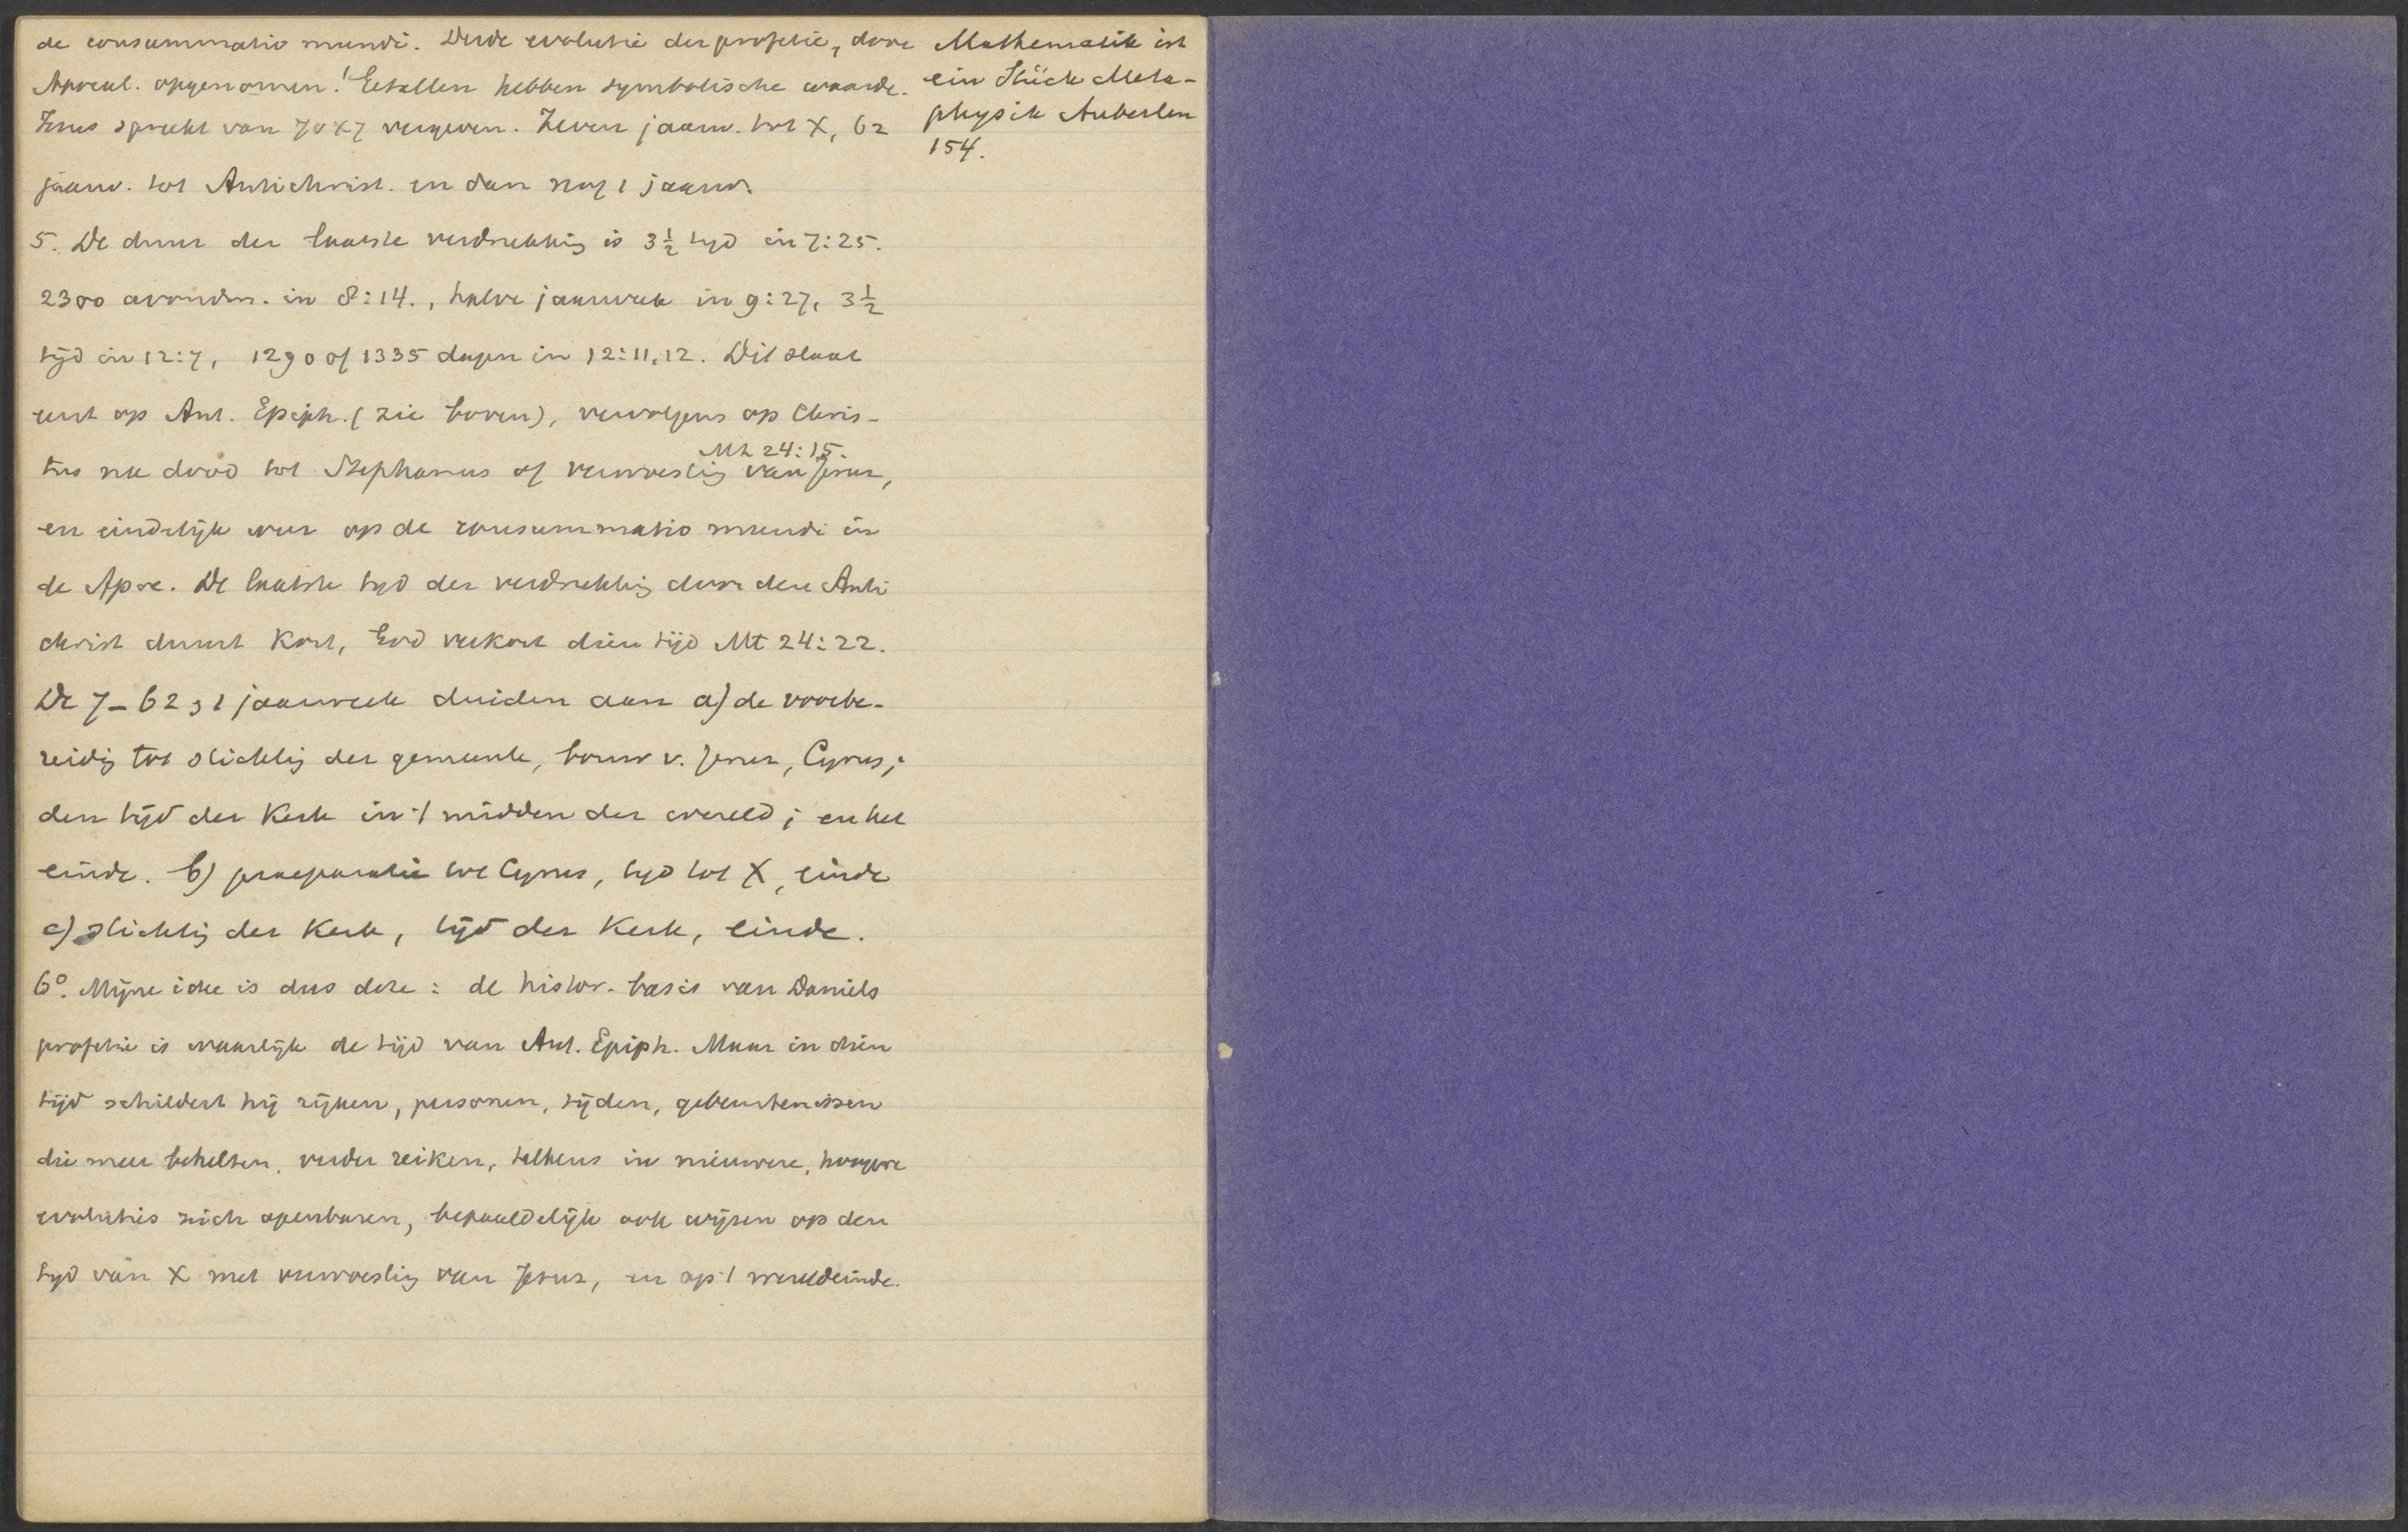 de consummatio mundi. Derde evolutie der profetie, door
Apocal. opgenomen! Getallen hebben symbolische waarde.
Jezus spreekt van 70x7 vergeven. Zeven jaarw. tot X, 62
jaarw. tot Antichrist. en dan nog 1 jaarw.
5. De duur der laatste verdrukking is 3½ tijd in 7:25.
2300 avonden. in 8:14., halve jaarweek in 9:27, 3½
tijd in 12:7, 1290 of 1335 dagen in 12:11,12. Dit slaat
eerst op Ant. Epiph. (zie boven), vervolgens op Chris-
Mt 24:15.
tus na dood tot Stephanus of verwoesting van Jeruz,
en eindelijk weer op de consummatio mundi in
de Apoc. De laatste tijd der verdrukking door den Anti
christ duurt kort, God verkort dien tijd Mt 24:22.
De 7-62 1 jaarweek duiden aan a) de voorbe-
reidig tot stichtig der gemeente, bouw v. Jeruz, Cyrus;
den tijd der Kerk in 't midden der wereld; en het
einde. b) praeparatie tot Cyrus, tijd tot X, einde
c) stichtig der Kerk, tijd der Kerk, einde.
6°. Mijne idee is dus deze: de histor. basis van Daniels
profetie is waarlijk de tijd van Ant. Epiph. Maar in dien
tijd schildert hij rijken, personen, tijden, gebeurtenissen
die meer behelsen, verder reiken, telkens in nieuwere, hoogere
evoluties zich openbaren, bepaaldelijk ook wijzen op den
tijd van X met verwoestig van Jeruz, en op 't wereldeinde.
Mathematik ist
ein Stück Meta-
physik Auberlen
154.